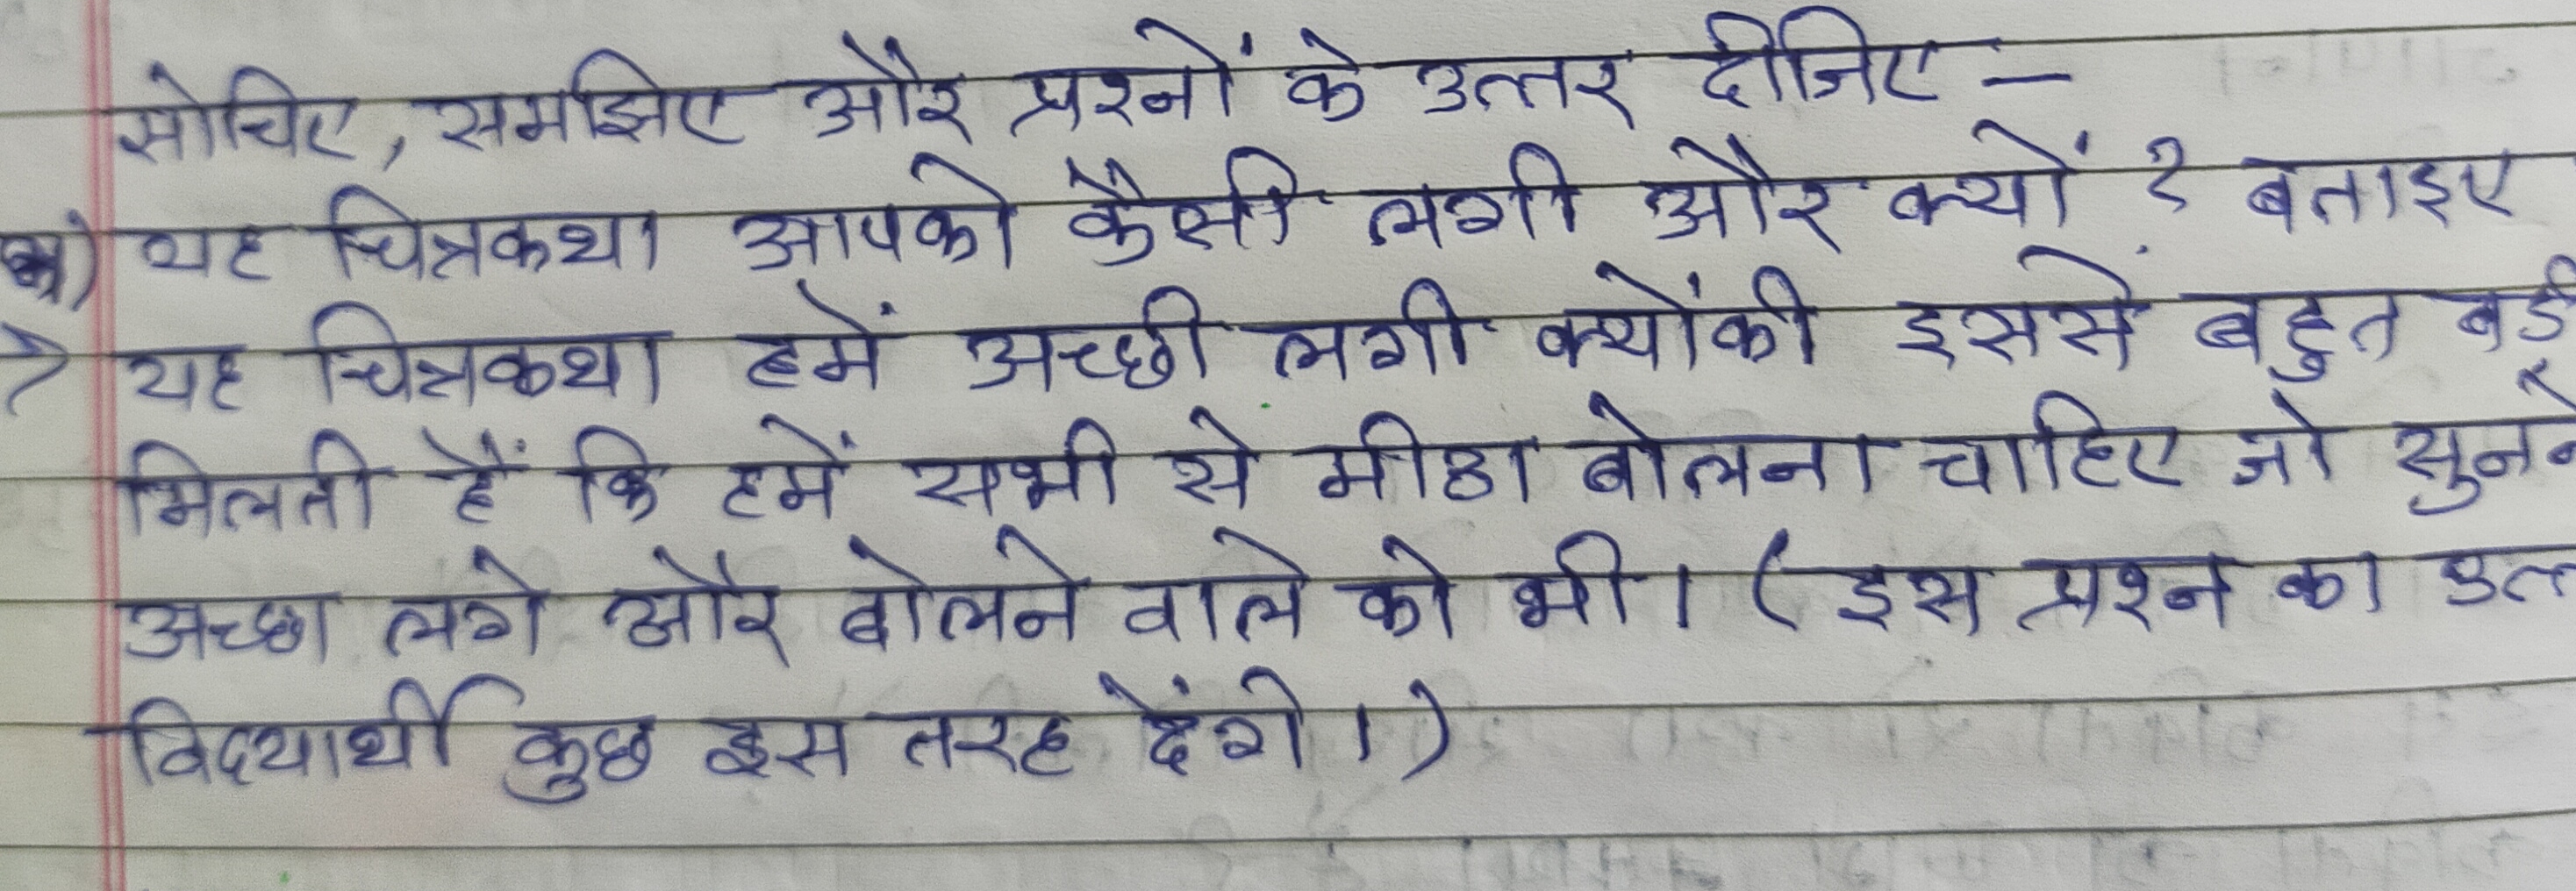 सोचिए, समझिए और प्रश्नों के उत्तर दीजिए –
यह चित्रकथा आपको कैसी लगी और क्यों ? बताइए
→ यह चित्रकथा हमें अच्छी लगी क्योंकी इससें बहुत
मिलती हैं कि हमें सभी से मीठा बोलना चाहिए जो
अच्छा लगे और बोलने वाले को भी। ( इस प्रश्न का
विद्यार्थी कुछ इस तरह देंगे।)